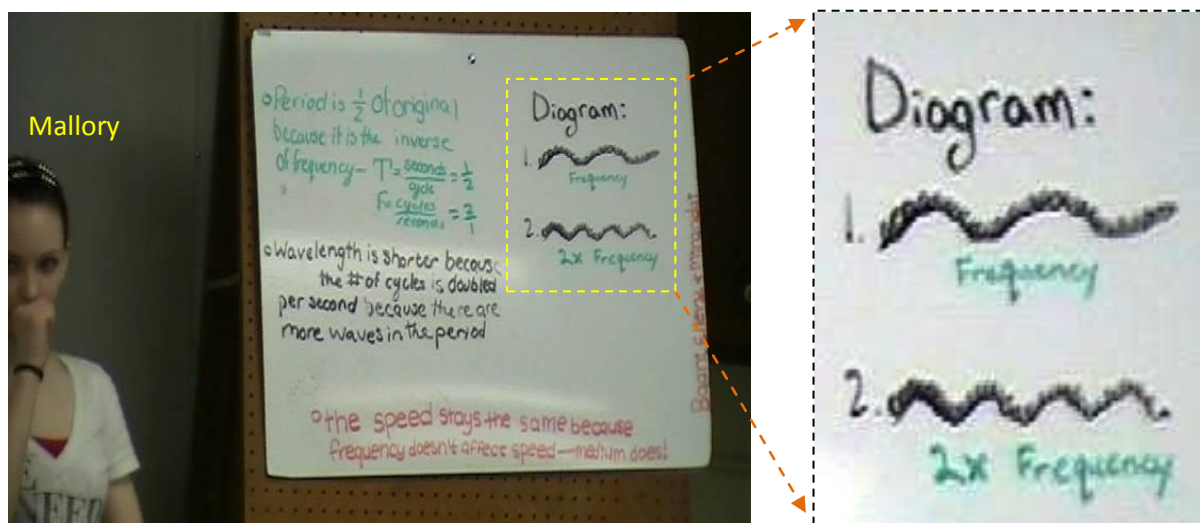 Mallory
oPeriod is 1/2 of original
because it is the inverse
of frequency– T= seconds/cycle = 1/2
F= cycles/seconds = 2/1
oWavelength is shorter because
the # of cycles is doubled
per second because there are
more waves in the period
Diagram:
1.
Frequency
2.
2x Frequency
othe speed stays the same because
frequency doesn't affect speed—medium does!
Diagram:
1.
Frequency
2.
2x Frequency